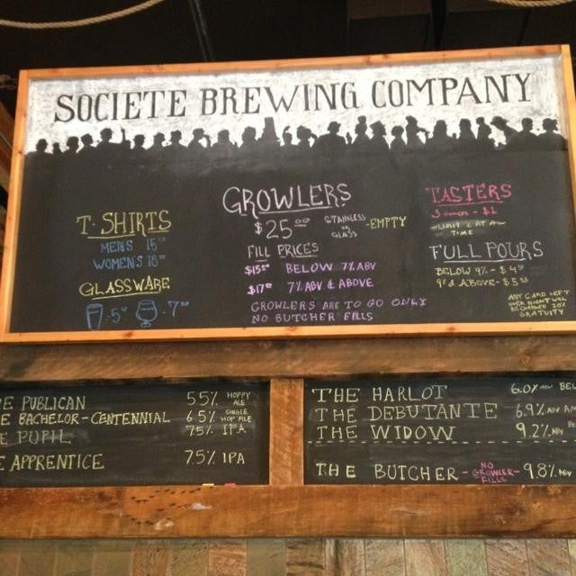 SOCIETE BREWING COMPANY
T·SHIRTS
MENS 15
WOMENS 18
GLASSWARE
·5 ·7
GROWLERS
$25 STAINLESS OR GLASS -EMPTY
FILL PRICES
$15 BELOW 7% ABV
$17 7% ABV & ABOVE
GROWLERS ARE TO GO ONLY
NO BUTCHER FILLS
TASTERS
3 ounces - $1
LIMIT 4 AT A
TIME
FULL POURS
BELOW 9% - $4
9% & ABOVE - $5
ANY CARD LEFT
OVER NIGHT WILL
BE CHARGED 20%
GRATUITY
E PUBLICAN 5.5% HOPPY ALE
E BACHELOR-CENTENNIAL 6.5% SINGLE HOP ALE
E PUPIL 7.5% IPA
E APPRENTICE 7.5% IPA
THE HARLOT 6.0% ABV BE
THE DEBUTANTE 6.9% ABV AM
THE WIDOW 9.2% ABV BE
THE BUTCHER - NO GROWLER FILLS - 9.8% ABV